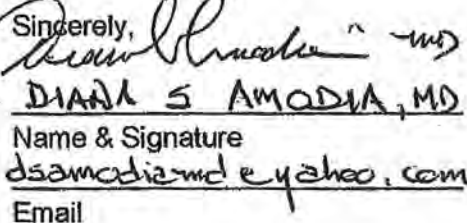 Sincerely,
MD
DIANA S AMODIA, MD
Name & Signature
dsamodiamd@yahoo.com
Email